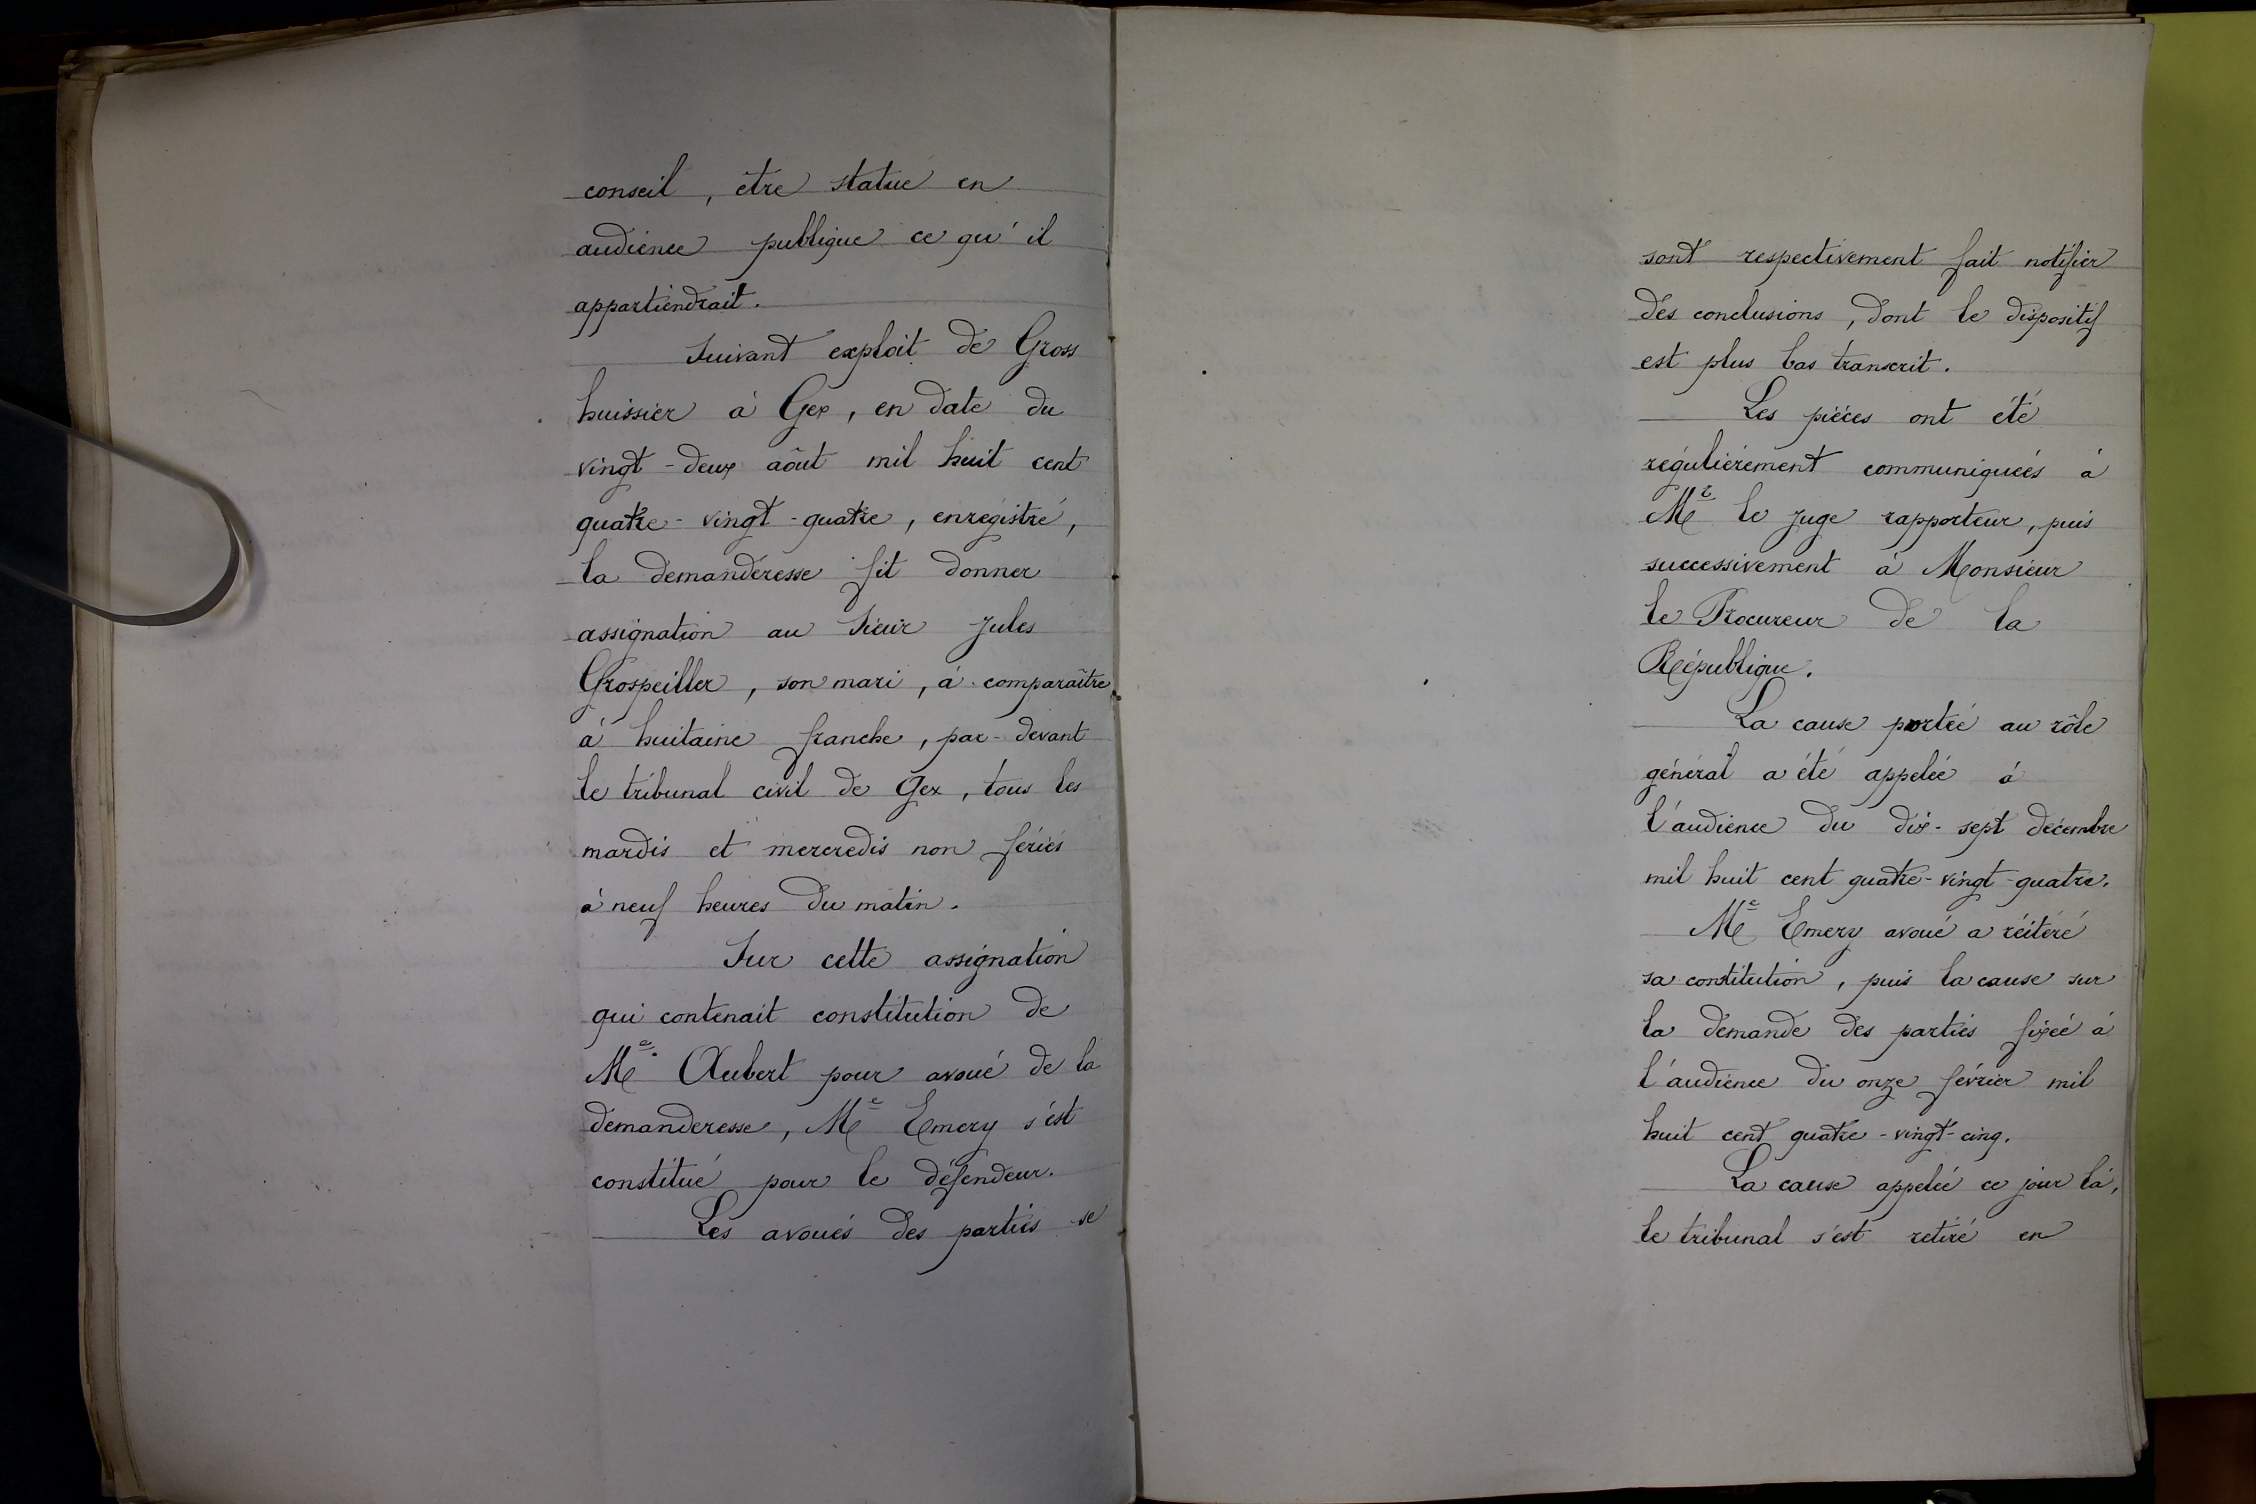 conseil, être statué en
audience publique ce qu'il
appartiendrait.
Suivant exploit de Gross
huissier à Gex, en date du
vingt-deux août mil huit cent
quatre-vingt-quatre, enregistré,
la demanderesse fit donner
assignation au Sieur Jules
Grospeiller, son mari, à comparaître
à huitaine franche, par-devant
le tribunal civil de Gex, tous les
mardis et mercredis non fériés
à neuf heures du matin.
Sur cette assignation
qui contenait constitution de
Me Aubert pour avoué de la
demanderesse, Me Emery s'est
constitué pour le défendeur.
Les avoués des parties se
sont respectivement fait notifier
des conclusions, dont le dispositif
est plus bas transcrit.
Les pièces ont été
régulièrement communiquées à
Mr le juge rapporteur, puis
successivement à Monsieur
le Procureur de la
République.
La cause portée au rôle
général a été appelée à
l'audience du dix-sept décembre
mil huit cent quatre-vingt-quatre.
Me Emery avoué a réitéré
sa constitution, puis la cause sur
la demande des parties fixée à
l'audience du onze février mil
huit cent quatre-vingt-cinq.
La cause appelée ce jour là,
le tribunal s'est retiré en